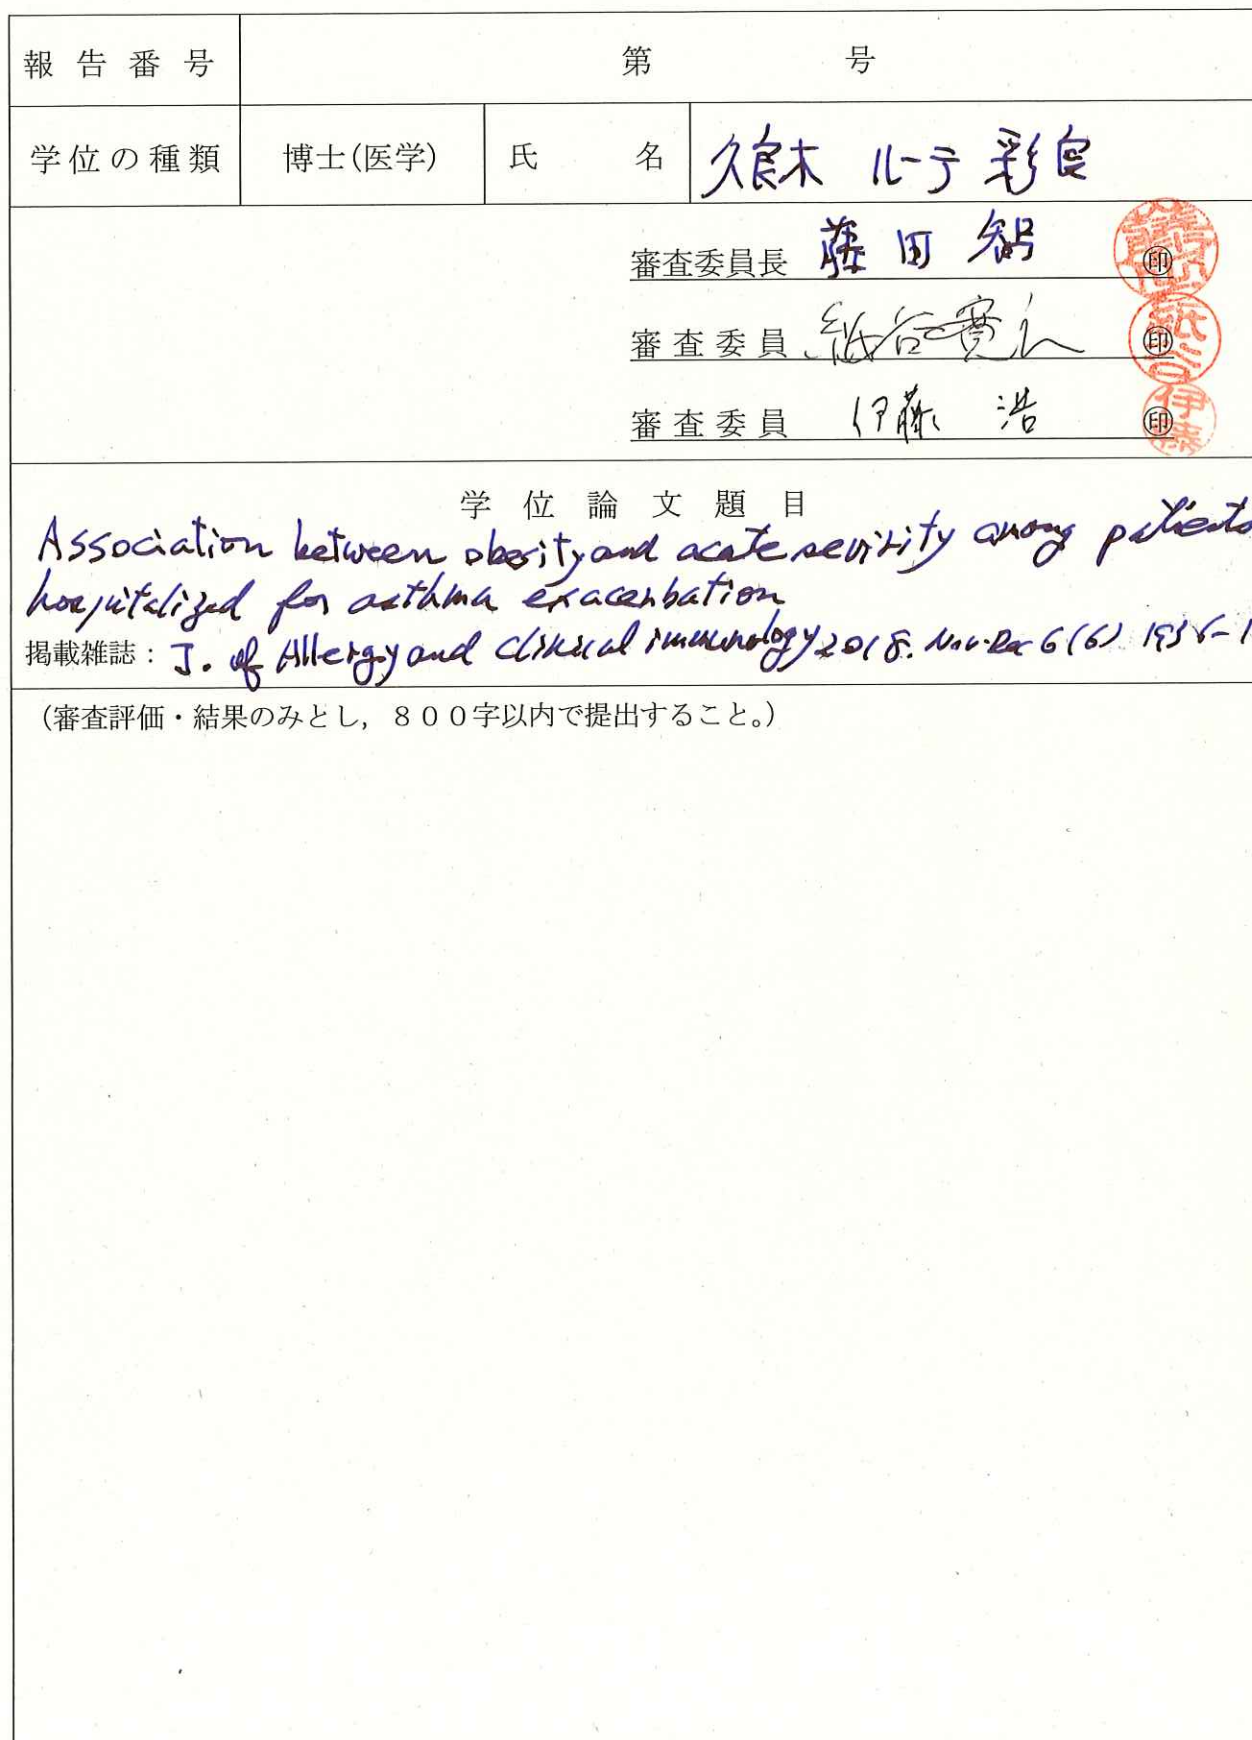 報告番号 第 号
学位の種類 博士(医学) 氏 名 久良木 ルーテ 彩良
審査委員長 藤田 智 ㊞
審査委員 紙谷寛之 ㊞
審査委員 伊藤 浩 ㊞
学位論文題目
Association between obesity and acute sevirity among patients
hospitalized for asthma exacerbation
掲載雑誌: J. of Allergy and clinical immunology 2018. Nov-Dec 6(6)
(審査評価・結果のみとし,800字以内で提出すること。)